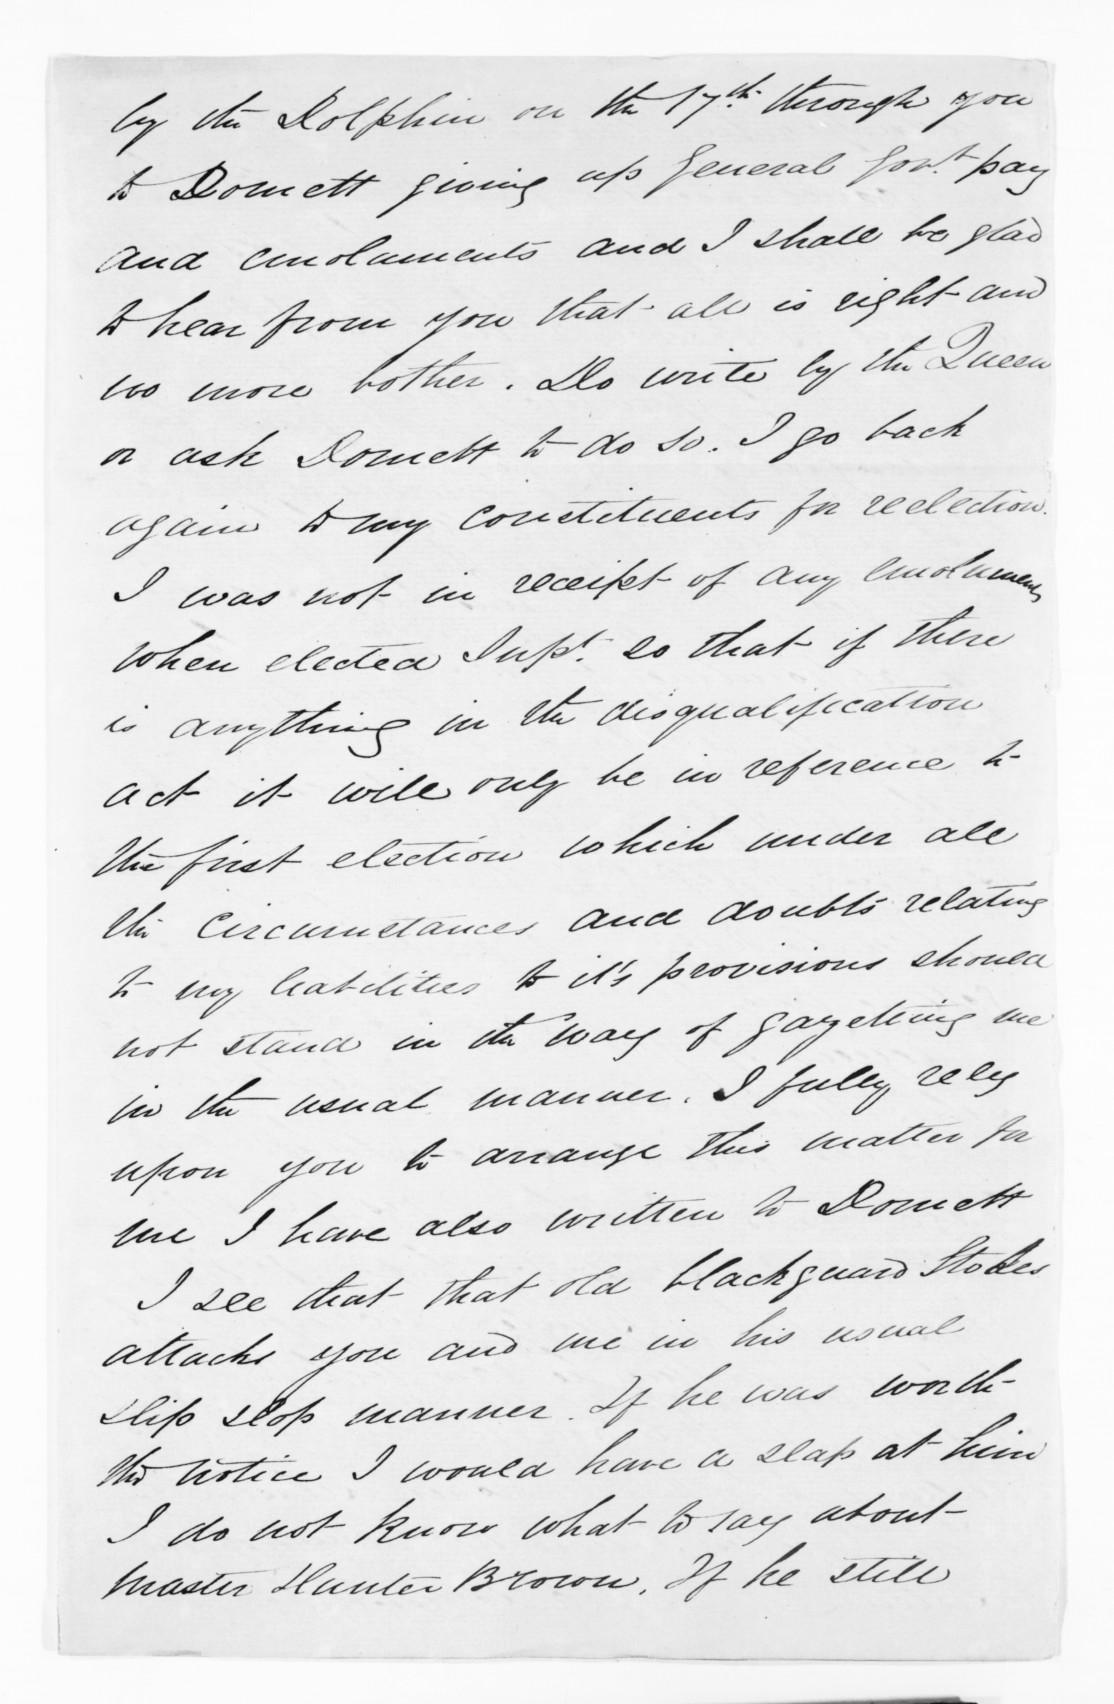 by the Dolphin on the 17th. through you
to Domett giving up General Govt. pay
and emoluments and I shall be glad
to hear from you that all is right and
no more bother. Do write by the Queen
or ask Domett to do so. I go back
again to my constituents for reelection.
I was not in receipt of any emoluments
when elected Supt. so that if there
is anything in the disqualification
act it will only be in reference to
the first election which under all
the circumstances and doubts relating
to my liabilities to it's provisions should
not stand in the way of gazetting me
in the usual manner. I fully rely
upon you to arrange this matter for
me I have also written to Domett
I see that that old blackguard Stokes
attacks you and me in his usual
slip slop manner. If he was worth
the notice I would have a slap at him
I do not know what to say about
Master Hunter Brown. If he still